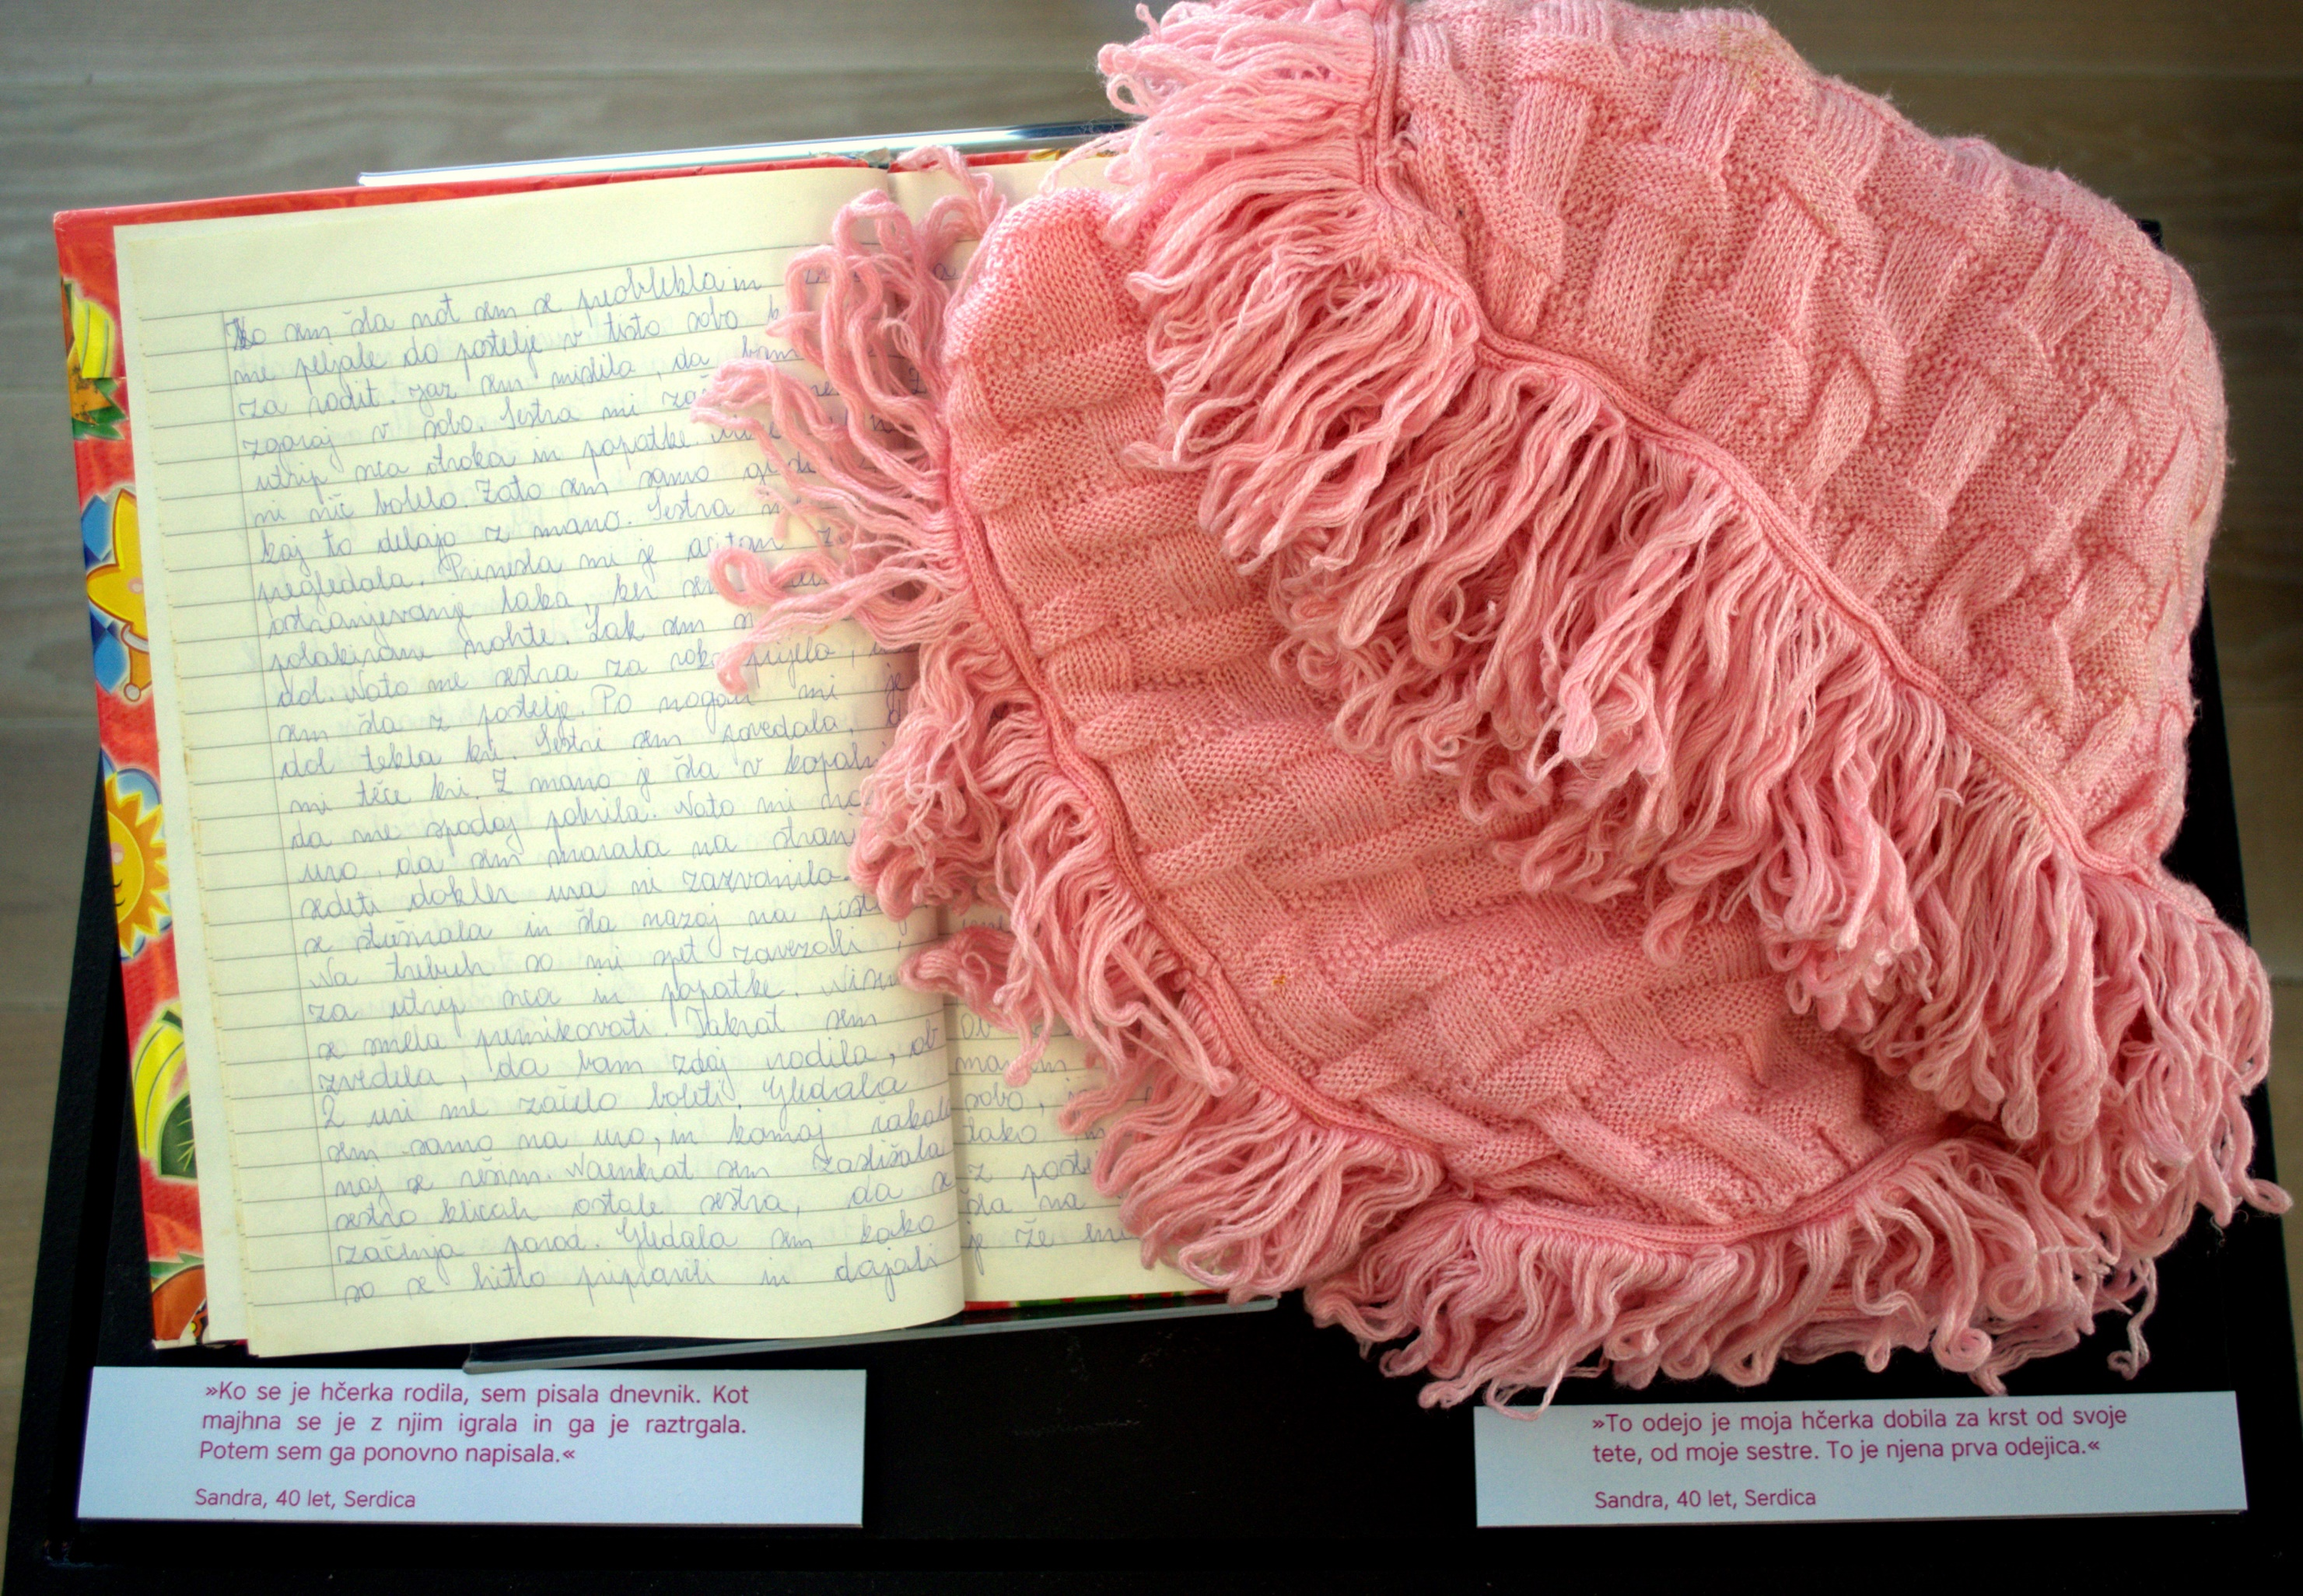 Ko sem šla not sem se preoblekla in
me peljale do postelje v tisto sobo
za rodit. Jaz sem mislila, da bom
zgoraj v sobo. Sestra mi
utrip srca otroka in popatke.
ni nič bolelo. Zato sem samo
kaj to delajo z mano. Sestra
pregledala. Prinesla mi je aceton
ostranjevanje laka, ker sem
polakirane nohte. Lak sem
dol. Nato me sestra za roko prijela,
sem šla z postelje. Po nogah mi je
dol tekla kri. Sestri sem povedala,
mi teče kri. Z mano je šla v
da me spodaj pobrila. Nato mi
uro, da sem morala na strani
sedeti dokler ura ni zazvonila.
se stuširala in šla nazaj na
Na trebuh so mi spet zavezali
za utrip srca in popatke. Nisem
se smela premikovati. Takrat sem
zvedila, da bom zdaj rodila, ob
2 uri me začelo boleti. Gledala
sem samo na uro, in komaj čakala
naj se rešim. Naenkrat sem zaslišala
sestro klicah ostale sestra, da se
začinja porod. Gledala sem kako
so se hitro pripravili in dajali
ob
sobo,
tako
z
šla na
je že
»Ko se je hčerka rodila, sem pisala dnevnik. Kot
majhna se je z njim igrala in ga je raztrgala.
Potem sem ga ponovno napisala.«
Sandra, 40 let, Serdica
»To odejo je moja hčerka dobila za krst od svoje
tete, od moje sestre. To je njena prva odejica.«
Sandra, 40 let, Serdica